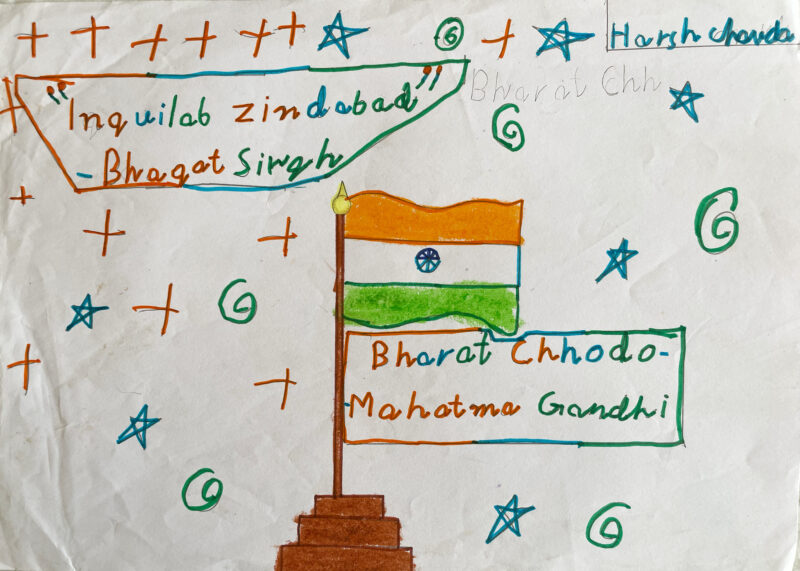 Harsh chavda
"Inquilab zindabad"
- Bhagat Singh
Bharat Chh
Bharat Chhodo-
-Mahatma Gandhi